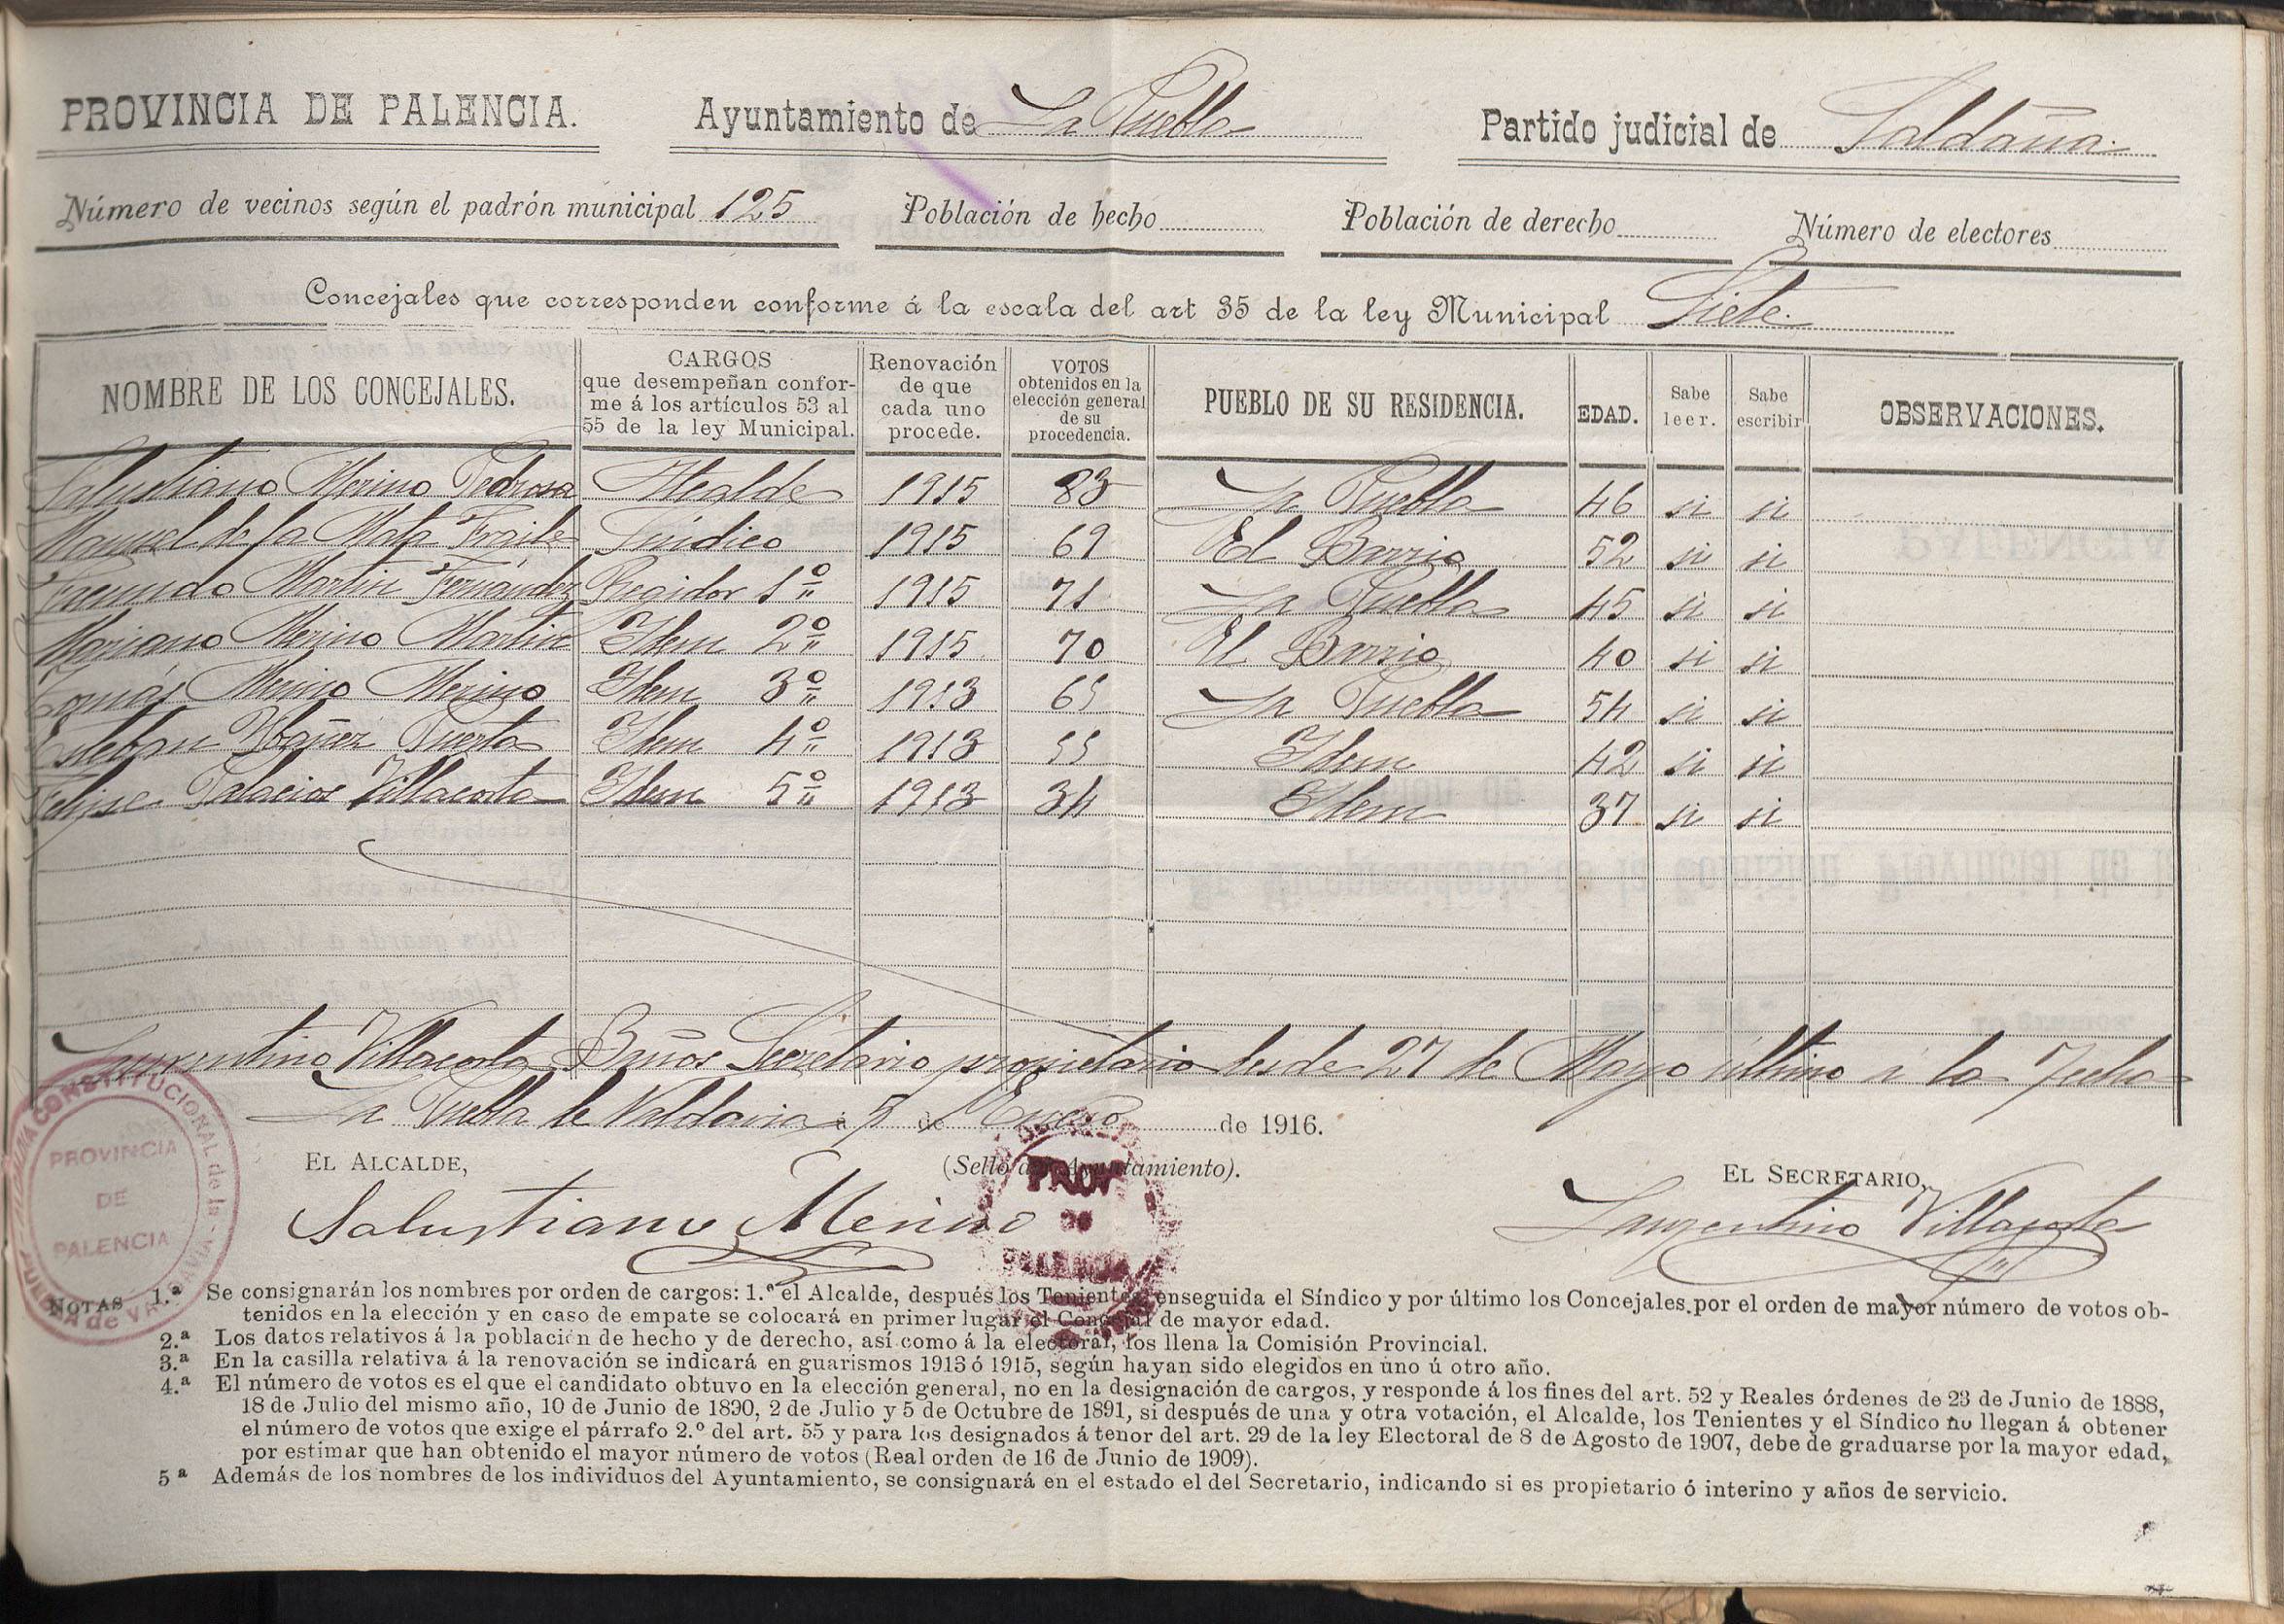 PROVINCIA DE PALENCIA. Ayuntamiento de La Puebla Partido judicial de Saldaña.
Número de vecinos según el padrón municipal 125 Población de hecho Población de derecho Número de electores
Concejales que corresponden conforme á la escala del art 35 de la ley Municipal Siete.
NOMBRE DE LOS CONCEJALES. CARGOS que desempeñan confor-me á los artículos 53 al 55 de la ley Municipal. Renovación de que cada uno procede. VOTOS obtenidos en la elección general de su procedencia. PUEBLO DE SU RESIDENCIA. EDAD. Sabe leer. Sabe escribir OBSERVACIONES.
Salustiano Merino Pedrosa Alcalde 1915 83 La Puebla 46 si si
Manuel de la Mata Fraile Síndico 1915 69 El Barrio 52 si si
Facundo Martin Fernández Regidor 1º 1915 71 La Puebla 45 si si
Mariano Merino Martin Idem 2º 1915 70 El Barrio 40 si si
Tomás Merino Merino Idem 3º 1913 65 La Puebla 54 si si
Esteban Ybáñez Puerta Idem 4º 1913 55 Idem 42 si si
Felipe Palacios Villacorta Idem 5º 1913 34 Idem 37 si si
Laurentino Villacorta Baños Secretario propietario desde 27 de Mayo último á la fecha
La Puebla de Valdavia á 5 de Enero de 1916.
EL ALCALDE, (Sello del Ayuntamiento). EL SECRETARIO,
Salustiano Merino Laurentino Villacorta
ALCALDIA CONSTITUCIONAL de la PUEBLA de VALDAVIA
PROVINCIA
DE
PALENCIA
PROV
DE
PALENCIA
NOTAS 1.ª Se consignarán los nombres por orden de cargos: 1.º el Alcalde, después los Tenientes, enseguida el Síndico y por último los Concejales por el orden de mayor número de votos ob-
tenidos en la elección y en caso de empate se colocará en primer lugar el Concejal de mayor edad.
2.ª Los datos relativos á la población de hecho y de derecho, así como á la electoral, los llena la Comisión Provincial.
3.ª En la casilla relativa á la renovación se indicará en guarismos 1913 ó 1915, según hayan sido elegidos en uno ú otro año.
4.ª El número de votos es el que el candidato obtuvo en la elección general, no en la designación de cargos, y responde á los fines del art. 52 y Reales órdenes de 23 de Junio de 1888,
18 de Julio del mismo año, 10 de Junio de 1890, 2 de Julio y 5 de Octubre de 1891, si después de una y otra votación, el Alcalde, los Tenientes y el Síndico no llegan á obtener
el número de votos que exige el párrafo 2.º del art. 55 y para los designados á tenor del art. 29 de la ley Electoral de 8 de Agosto de 1907, debe de graduarse por la mayor edad,
por estimar que han obtenido el mayor número de votos (Real orden de 16 de Junio de 1909).
5ª Además de los nombres de los individuos del Ayuntamiento, se consignará en el estado el del Secretario, indicando si es propietario ó interino y años de servicio.